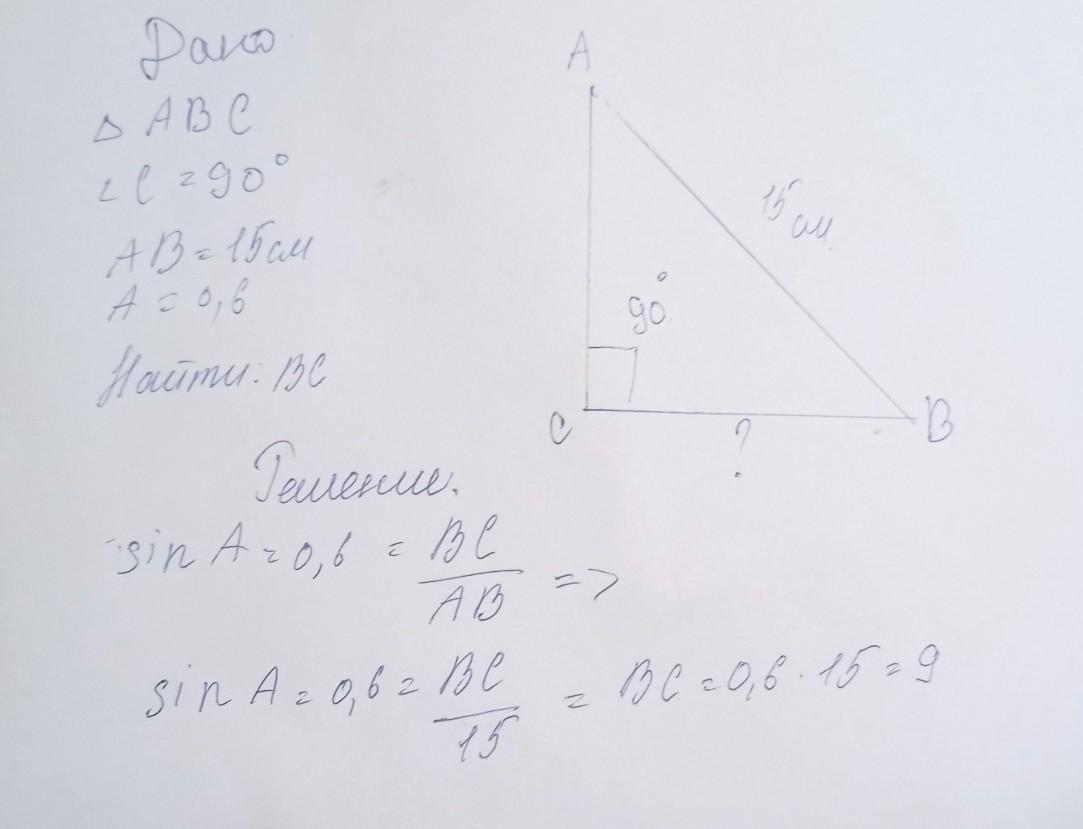 Дано
△ ABC
∠C = 90°
AB = 15 см
A = 0,6
Найти: BC
A
15 см
90°
C
?
B
Решение.
sin A = 0,6 = BC/AB =>
sin A = 0,6 = BC/15 = BC = 0,6 · 15 = 9